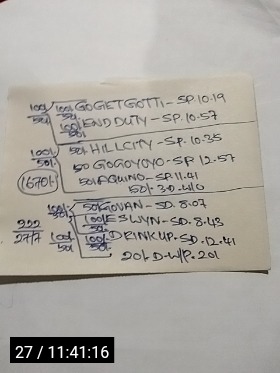 100/50/ 100/50/ GOGETGOTTI - SP. 10.19
100/50/ ENDDUTY - SP. 10.57
100/50/ 50/. HILLCITY - SP. 10.35
50 GOGOYOYO - SP 12.57
1670/- 50/ AQUINO - SP. 11.41
50/. 3D. W/O
50/ GOVAN - SD. 8.07
100/50/ ESWYN - SD. 8.43
100/50/ 100/50/ DRINKUP - SD. 12.41
20/. D-W/P. 201
27 / 11:41:16